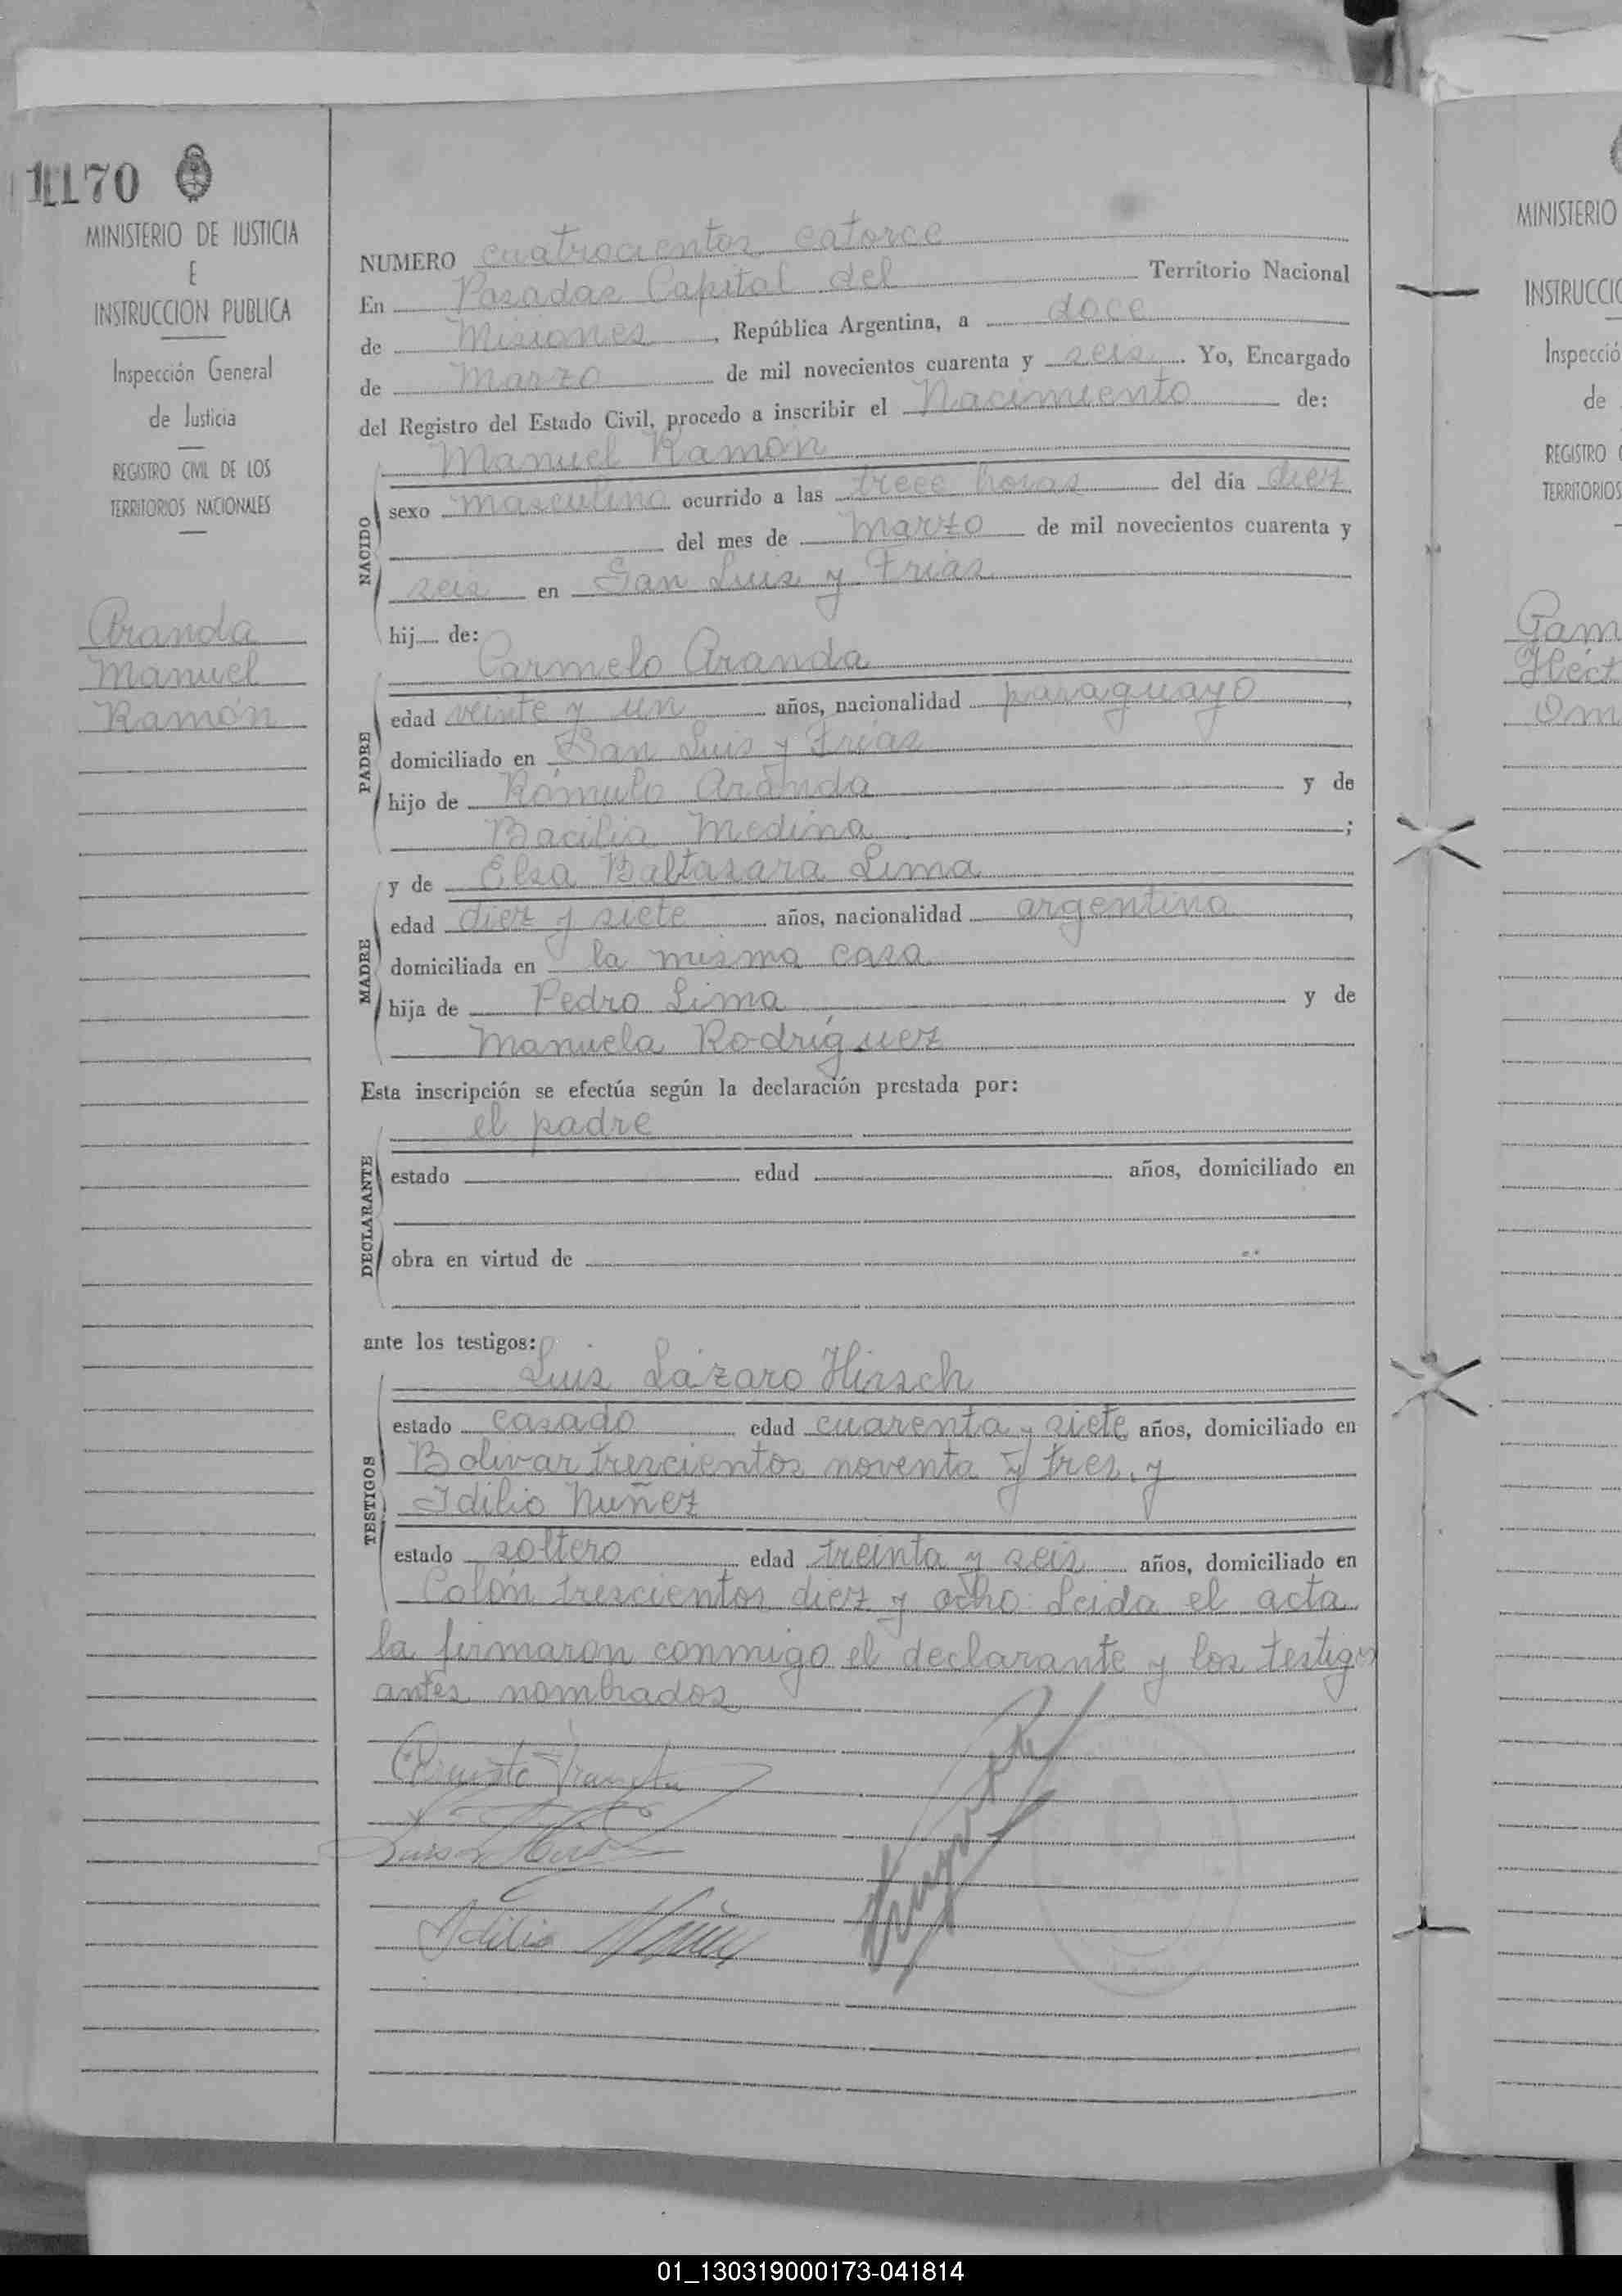 1170
MINISTERIO DE JUSTICIA
E
INSTRUCCION PUBLICA
Inspección General
de Justicia
REGISTRO CIVIL DE LOS
TERRITORIOS NACIONALES
Aranda
Manuel
Ramón
NUMERO cuatrocientos catorce
En Posadas Capital del Territorio Nacional
de Misiones, República Argentina, a doce
de Marzo de mil novecientos cuarenta y seis. Yo, Encargado
del Registro del Estado Civil, procedo a inscribir el Nacimiento de:
Manuel Ramón
NACIDO
sexo masculino ocurrido a las trece horas del día diez
del mes de Marzo de mil novecientos cuarenta y
seis en San Luis y Frias
hij de:
Carmelo Aranda
PADRE
edad veinte y un años, nacionalidad paraguayo,
domiciliado en San Luis y Frias
hijo de Rómulo Aranda y de
Bacilia Medina;
y de Elsa Baltasara Lima
MADRE
edad diez y siete años, nacionalidad argentina,
domiciliada en la misma casa
hija de Pedro Lima y de
Manuela Rodríguez
Esta inscripción se efectúa según la declaración prestada por:
el padre
DECLARANTE
estado edad años, domiciliado en
obra en virtud de
ante los testigos:
Luis Lázaro Hirsch
TESTIGOS
estado casado edad cuarenta y siete años, domiciliado en
Bolivar trescientos noventa y tres, y
Idilio Nuñez
estado soltero edad treinta y seis años, domiciliado en
Colón trescientos diez y ocho Leida el acta
la firmaron conmigo el declarante y los testigos
antes nombrados
Idilio Nuñez
MINISTERIO
INSTRUCCIO
Inspecció
de
REGISTRO
TERRITORIOS
Gam
Héct
Om
01_130319000173-041814